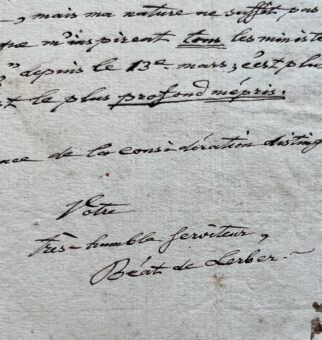 , mais ma nature ne suffit pas
que m'inspirent tous les ministe
" depuis le 13e mars; c'est plu
st le plus profond mépris.
nce de la considération disting
Votre
très-humble serviteur,
Béat de Lerber.-